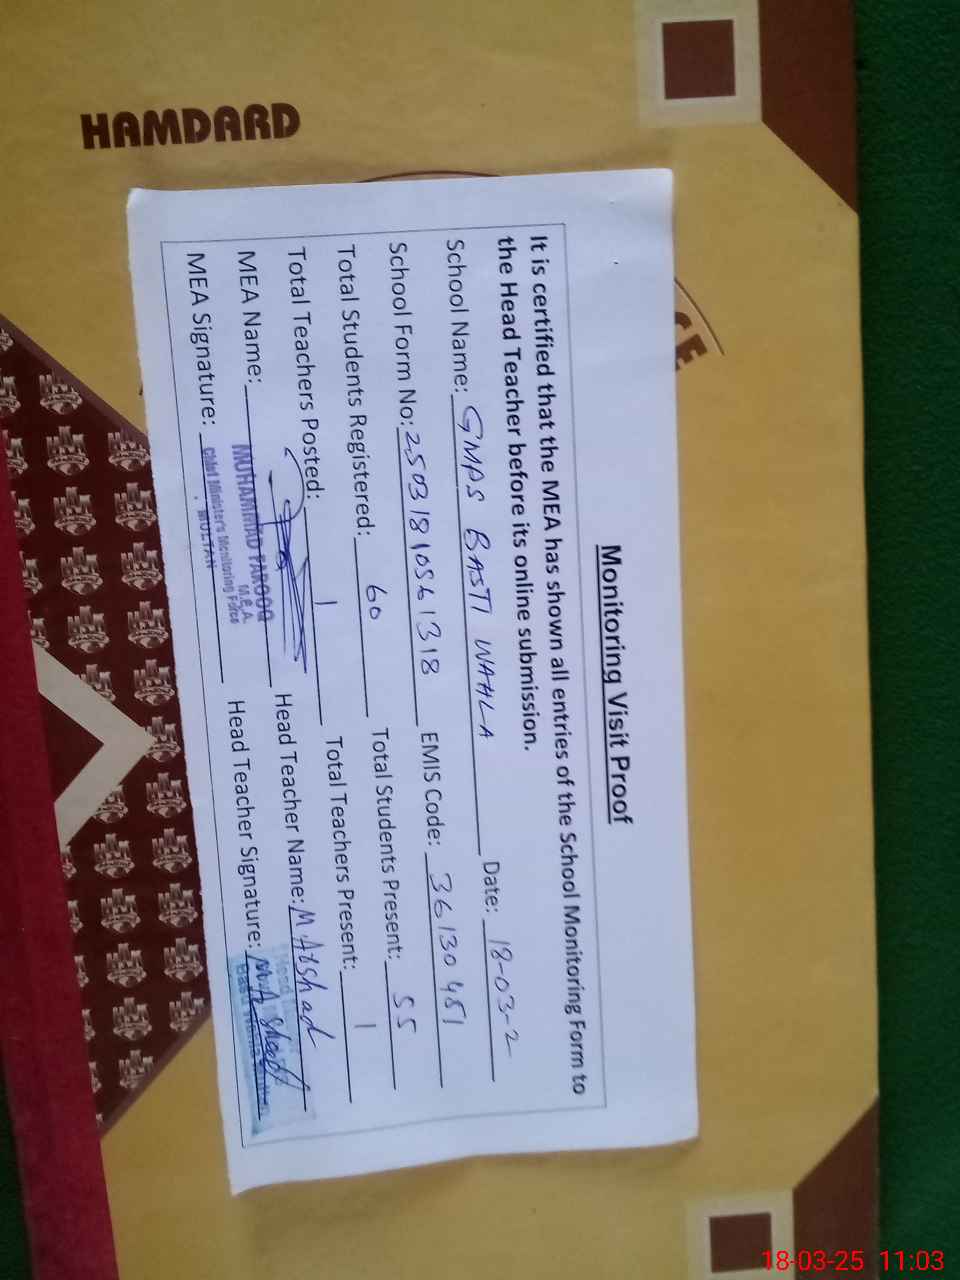 HAMDARD
GE
Monitoring Visit Proof
It is certified that the MEA has shown all entries of the School Monitoring Form to
the Head Teacher before its online submission.
School Name: GMPS BASTI WAHLA Date: 18-03-2
School Form No: 25031810561318 EMIS Code: 36130451
Total Students Registered: 60 Total Students Present: 55
Total Teachers Posted: 1 Total Teachers Present: 1
MEA Name: Head Teacher Name: M Arshad
MUHAMMAD FAROOQ
M.E.A.
MEA Signature: Head Teacher Signature: M Arshad
Chief Minister's Monitoring Force
MULTAN
18-03-25 11:03